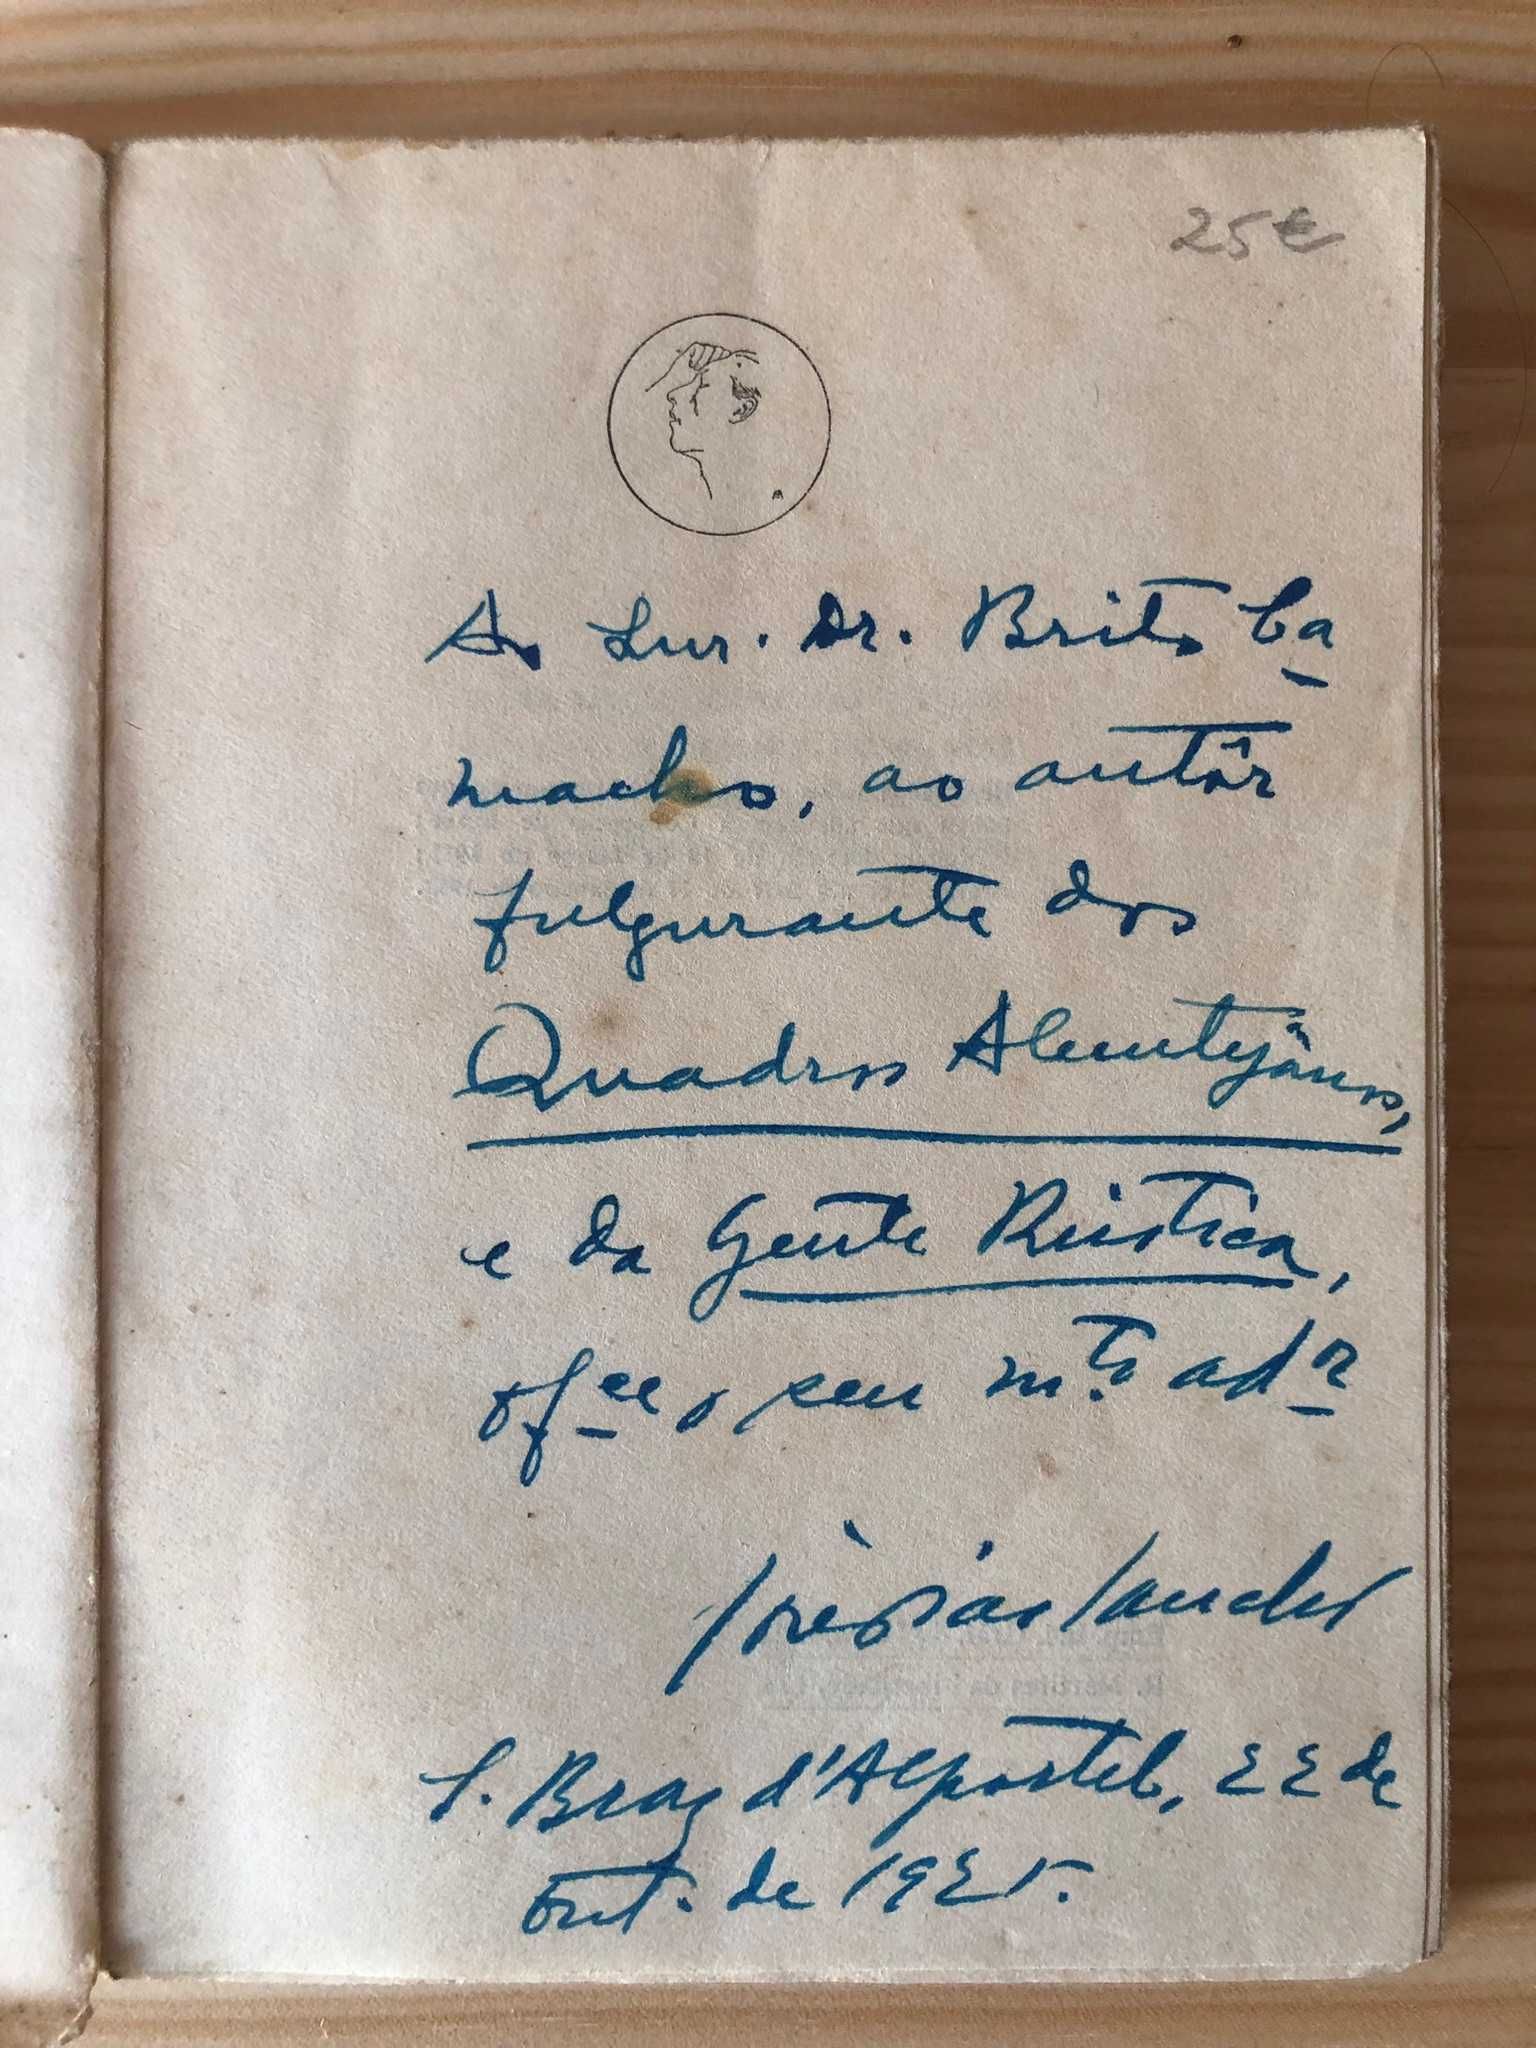 25€
Ao Snr. Dr. Brito Ca-
macho, ao autôr
fulgurante dos
Quadros Alemtejânos,
e da Gente Rústica,
ofce o seu mto. adr
S. Braz d'Alportel, 22 de
Out. de 1925.